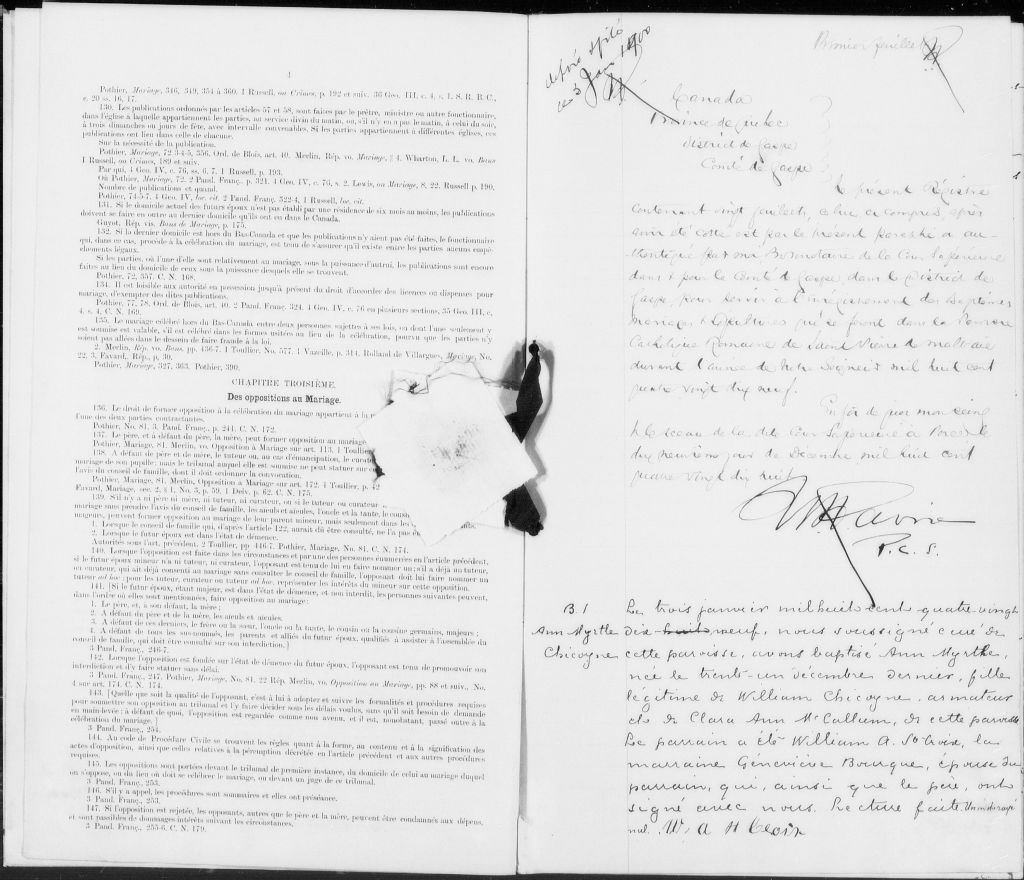 4
Pothier, Mariage, 346, 349, 354 à 360. 1 Russell, on Crimes, p. 192 et suiv. 36 Geo. III, c. 4, s. 1. S. R. B. C.,
c. 20 ss. 16, 17.
130. Les publications ordonnés par les articles 57 et 58, sont faites par le prêtre, ministre ou autre fonctionnaire,
dans l'église à laquelle appartiennent les parties, au service divin du matin, ou, s'il n'y en a pas le matin, à celui du soir,
à trois dimanches ou jours de fête, avec intervalle convenables. Si les parties appartiennent à différentes églises, ces
publications ont lieu dans celle de chacune.
Sur la nécessité de la publication.
Pothier, Mariage, 72-3-4-5, 356. Ord. de Blois, art. 40. Merlin, Rép. vo. Mariage, § 4. Wharton, L. L. vo. Bans
1 Russell, on Crimes, 189 et suiv.
Par qui, 4 Geo. IV, c. 76, ss. 6, 7. 1 Russell, p. 193.
Où Pothier, Mariage, 72. 2 Pand. Franç., p. 321. 4 Geo. IV, c. 76, s. 2. Lewis, on Mariage, 8, 22. Russell p. 190.
Nombre de publications et quand.
Pothier, 74-5-7. 4 Geo. IV, loc. cit. 2 Pand. Franç. 322-4, 1 Russell, loc. cit.
131. Si le domicile actuel des futurs époux n'est pas établi par une résidence de six mois au moins, les publications
doivent se faire en outre au dernier domicile qu'ils ont eu dans le Canada.
Guyot, Rép. vis. Bans de Mariage, p. 175.
132. Si le dernier domicile est hors du Bas-Canada et que les publications n'y aient pas été faites, le fonctionnaire
qui, dans ce cas, procède à la célébration du mariage, est tenu de s'assurer qu'il existe entre les parties aucuns empê-
chements légaux.
Si les parties, ou l'une d'elle sont relativement au mariage, sous la puissance d'autrui, les publications sont encore
faites au lieu du domicile de ceux sous la puissance desquels elle se trouvent.
Pothier, 72, 357. C. N. 168.
134. Il est loisible aux autorité en possession jusqu'à présent du droit d'accorder des licences ou dispenses pour
mariage, d'exempter des dites publications.
Pothier, 77, 78. Ord. de Blois, art. 40. 2 Pand. Franç. 324. 4 Geo. IV, c. 76 en plusieurs sections, 35 Geo. III, c.
4, s. 4, C. N. 169.
135. Le mariage célébré hors du Bas-Canada entre deux personnes sujettes à ses lois, ou dont l'une seulement y
est soumise est valable, s'il est célébré dans les formes usitées au lieu de la célébration, pourvu que les parties n'y
soient pas allées dans le dessein de faire fraude à la loi.
2. Merlin, Rép. vo. Bans, pp. 436-7. 1 Toullier, No. 577. 1 Vazeille, p. 314. Rolland de Villargues, Mariage, No.
22, 3. Favard, Rép., p. 39.
Pothier, Mariage, 327, 363. Pothier, 390.
CHAPITRE TROISIÈME.
Des oppositions au Mariage.
136. Le droit de former opposition à la célébration du mariage appartient à la
l'une des deux parties contractantes.
Pothier, No. 81. 3. Pand. Franç., p. 241. C. N. 172.
137. Le père, et à défaut du père, la mère, peut former opposition au mariage
Pothier, Mariage, 81. Merlin, vo. Opposition à Mariage sur art. 113. 1 Toullier
138. A défaut de père et de mère, le tuteur ou, au cas d'émancipation, le curateur
mariage de son pupille; mais le tribunal auquel elle est soumise ne peut statuer sur
l'avis du conseil de famille, dont il doit ordonner la convocation.
Pothier, Mariage, 81. Merlin, Opposition à Mariage sur art. 172. 1 Toullier, p. 42
Favard, Mariage, sec. 2, § 1. No. 5, p. 59. 1 Delv. p. 62. C. N. 175.
139. S'il n'y a ni père ni mère, ni tuteur, ni curateur, ou si le tuteur ou curateur
mariage sans prendre l'avis du conseil de famille, les aïeuls et aïeules, l'oncle et la tante, le cousin
majeurs, peuvent former opposition au mariage de leur parent mineur, mais seulement dans les
1. Lorsque le conseil de famille qui, d'après l'article 122, aurait dû être consulté, ne l'a pas
2. Lorsque le futur époux est dans l'état de démence.
Autorités sous l'art. précédent. 2 Toullier, pp 446-7. Pothier, Mariage, No. 81. C. N. 174.
140. Lorsque l'opposition est faite dans les circonstances et par une des personnes énumérées en l'article précédent,
si le futur époux mineur n'a ni tuteur, ni curateur, l'opposant est tenu de lui en faire nommer un; s'il a déjà un tuteur,
ou curateur, qui ait déjà consenti au mariage sans consulter le conseil de famille, l'opposant doit lui faire nommer un
tuteur ad hoc; pour les tuteur, curateur ou tuteur ad hoc, représenter les intérêts du mineur sur cette opposition.
141. [Si le futur époux, étant majeur, est dans l'état de démence, et non interdit, les personnes suivantes peuvent,
dans l'ordre où elles sont mentionnées, faire opposition au mariage:
1. Le père, et, à son défaut, la mère;
2. A défaut du père et de la mère, les aïeuls et aïeules.
3. A défaut de ces derniers, le frère ou la sœur, l'oncle ou la tante, le cousin ou la cousine germains, majeurs;
4. A défaut de tous les sus-nommés, les parents et alliés du futur époux, qualifiés à assister à l'assemblée du
conseil de famille, qui doit être consulté sur son interdiction.]
3 Pand. Franç., 246-7.
142. Lorsque l'opposition est fondée sur l'état de démence du futur époux, l'opposant est tenu de promouvoir son
interdiction et d'y faire statuer sans délai.
3 Pand. Franç., 247. Pothier, Mariage, No. 81. 22 Rép. Merlin, vo. Opposition au Mariage, pp. 88 et suiv., No.
4 sur art. 174. C. N. 174.
143. [Quelle que soit la qualité de l'opposant, c'est à lui à adopter et suivre les formalités et procédures requises
pour soumettre son opposition au tribunal et l'y faire décider sous les délais voulus, sans qu'il soit besoin de demande
en main-levée; à défaut de quoi, l'opposition est regardée comme non avenu, et il est, nonobstant, passé outre à la
célébration du mariage.]
3 Pand. Franç., 254.
144. Au code de Procédure Civile se trouvent les règles quant à la forme, au contenu et à la signification des
actes d'opposition, ainsi que celles relatives à la péremption décrétée en l'article précédent et aux autres procédures
requises.
145. Les oppositions sont portées devant le tribunal de première instance, du domicile de celui au mariage duquel
on s'oppose, ou du lieu où doit se célébrer le mariage, ou devant un juge de ce tribunal.
3 Pand. Franç., 253.
146. S'il y a appel, les procédures sont sommaires et elles ont préséance.
3 Pand. Franç., 253.
147. Si l'opposition est rejetée, les opposants, autres que le père et la mère, peuvent être condamnés aux dépens,
et sont passibles de dommages intérêts suivant les circonstances.
3 Pand. Franç., 255-6. C. N. 179.
ce 3 Jan 1900
Premier feuillet
Canada
Province de Québec
District de Gaspé
Comté de Gaspé
Le présent Régistre
contenant vingt feuillets, celui ci compris, après
avoir été coté est par le présent paraphé et au-
thentiqué par moi Protonotaire de la Cour Supérieure
dans & pour le Comté de Gaspé, dans le District de
Gaspé, pour servir à l'enregistrement des Baptêmes
Mariages & Sépultures qui se feront dans la Paroisse
Catholique Romaine de Saint Pierre de Malbaie
durant l'année de Notre Seigneur mil huit cent
quatre vingt dix neuf.
En foi de quoi mon seing
& le sceau de la dite Cour Supérieure à Percé le
dix neuvième jour de Décembre mil huit cent
quatre vingt dix huit
P. C. S.
B. 1
Ann Myrtle
Chicoyne
Le trois janvier mil huit cent quatre-vingt
dix-huit neuf, nous soussigné curé de
cette paroisse, avons baptisé Ann Myrtle,
née le trente-un décembre dernier, fille
légitime de William Chicoyne, armateur
et de Clara Ann McCallum, de cette paroisse
Le parrain a été William A. St Croix, la
marraine Geneviève Bourque, épouse du
parrain, qui, ainsi que le père, ont
signé avec nous. Lecture faite. Un mot rayé
nul. W. A St Croix